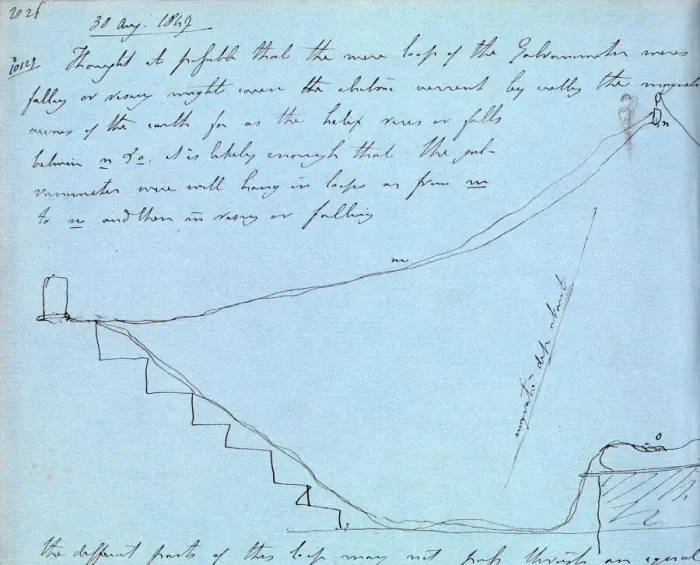 30 Aug. 1849
10121 Thought it possible that the mere loop of the Galvanometer wires
falling or rising might cause the electric current by cutting the magnetic
curves of the earth for as the helix rises or falls
between n & o. it is likely enough that the gal-
vanometer wire will hang in loops as from m
to n and then in rising or falling
n
m
magnetic dip about
o
the different parts of this loop may not pass through an equal